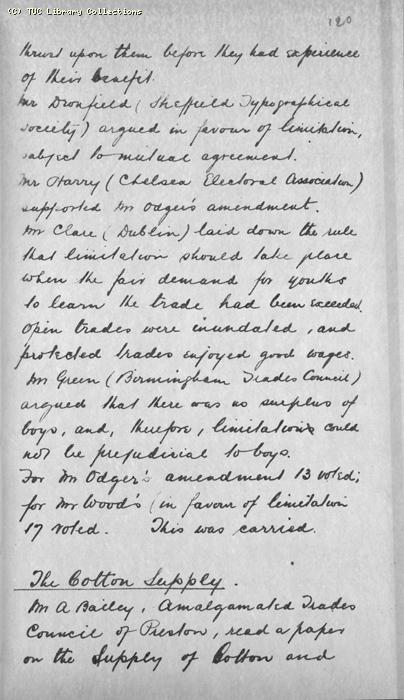 (C) TUC Library Collections
120
thrust upon them before they had experience
of their benefit.
Mr Dronfield (Sheffield Typographical
Society) argued in favour of limitation,
subject to mutual agreement.
Mr Harry (Chelsea Electoral Association)
supported Mr Odger's amendment.
Mr Clare (Dublin) laid down the rule
that limitation should take place
when the fair demand for youths
to learn the trade had been exceeded.
Open trades were inundated, and
protected trades enjoyed good wages.
Mr Green (Birmingham Trades Council)
argued that there was no surplus of
boys, and, therefore, limitations could
not be prejudicial to boys.
For Mr Odger's amendment 13 voted;
for Mr Wood's (in favour of limitation
17 voted. This was carried.
The Cotton Supply.
Mr A Bailey, Amalgamated Trades
Council of Preston, read a paper
on the Supply of Cotton and